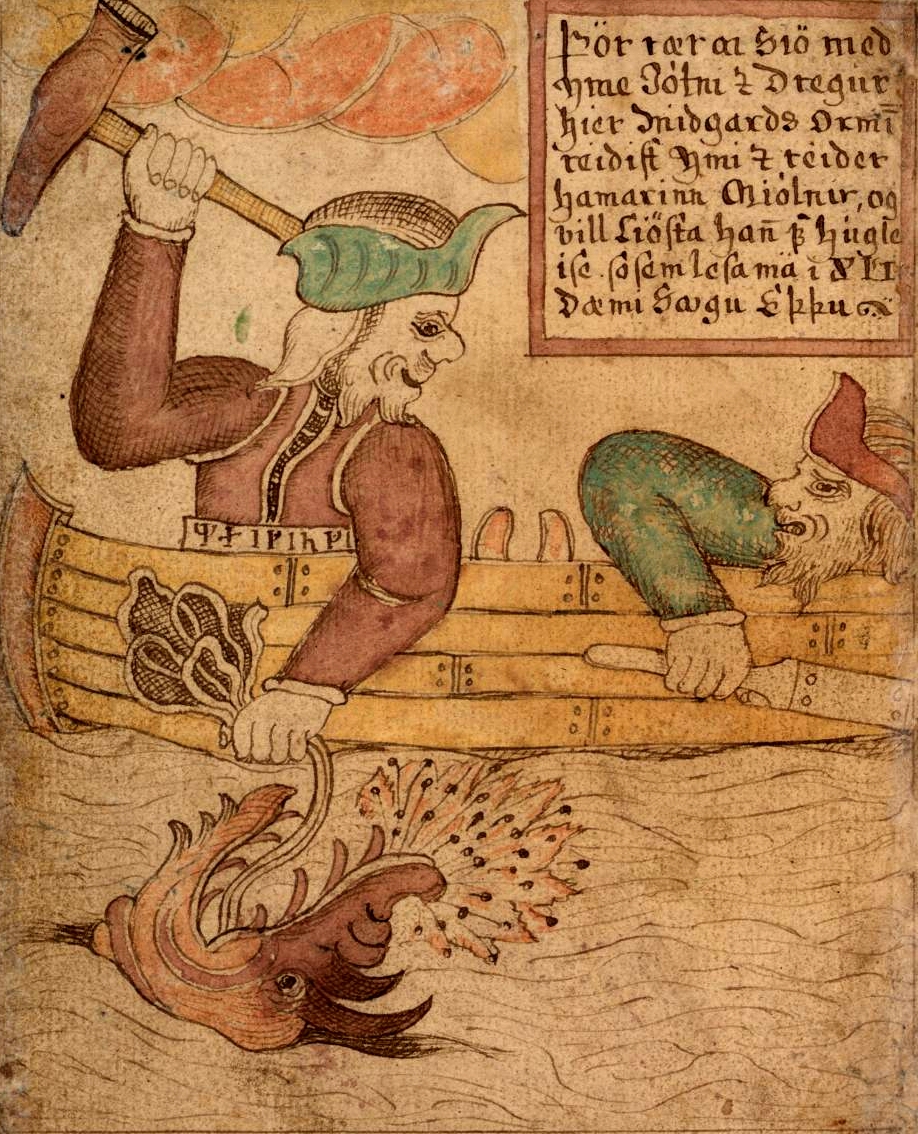 Þör rær ꜳ Siö med
Yme Jötni ⁊ dregur
hier Midgards Ormī
reidist Ymi ⁊ reider
hamarinn Miölnir, og
vill Liösta han̄
ise . so sem lesa mä i XLI
Dæmi Sögu Eþþu